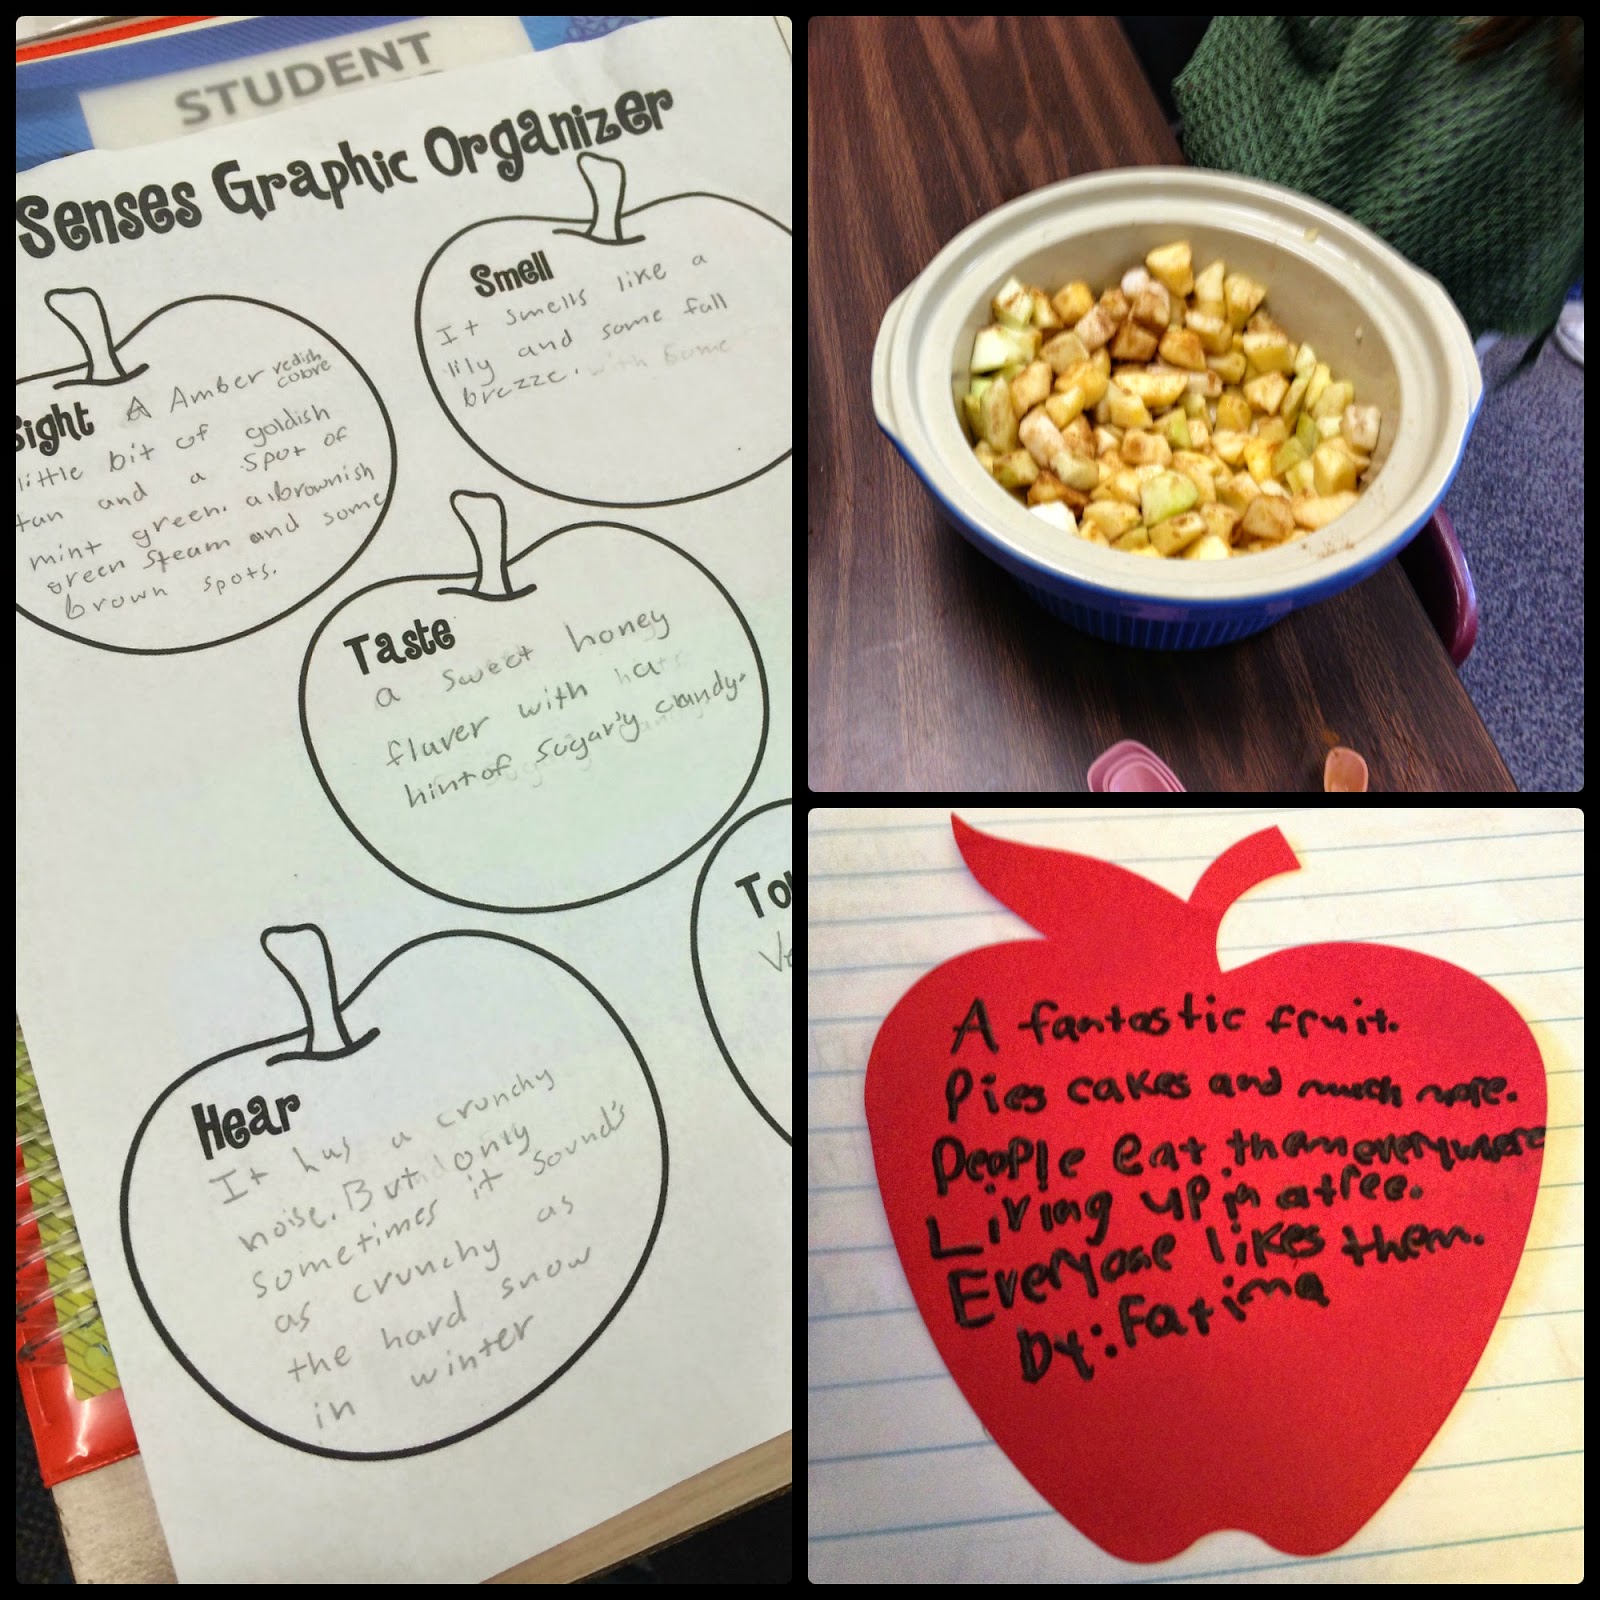 STUDENT
Senses Graphic Organizer
Sight A Amber redish
cobre
little bit of goldish
tan and a spot of
mint green. a brownish
green steam and some
brown spots.
Smell
It smells like a
lily and some fall
brezze. with some
Taste
a sweet honey
flaver with ha
hint of sugar'y candy.
Hear
It has a crunchy
noise. But only
sometimes it sound's
as crunchy as
the hard snow
in winter
A fantastic fruit.
Pies cakes and much more.
People eat them everywhere
Living up in a tree.
Everyone likes them.
By: Fatima